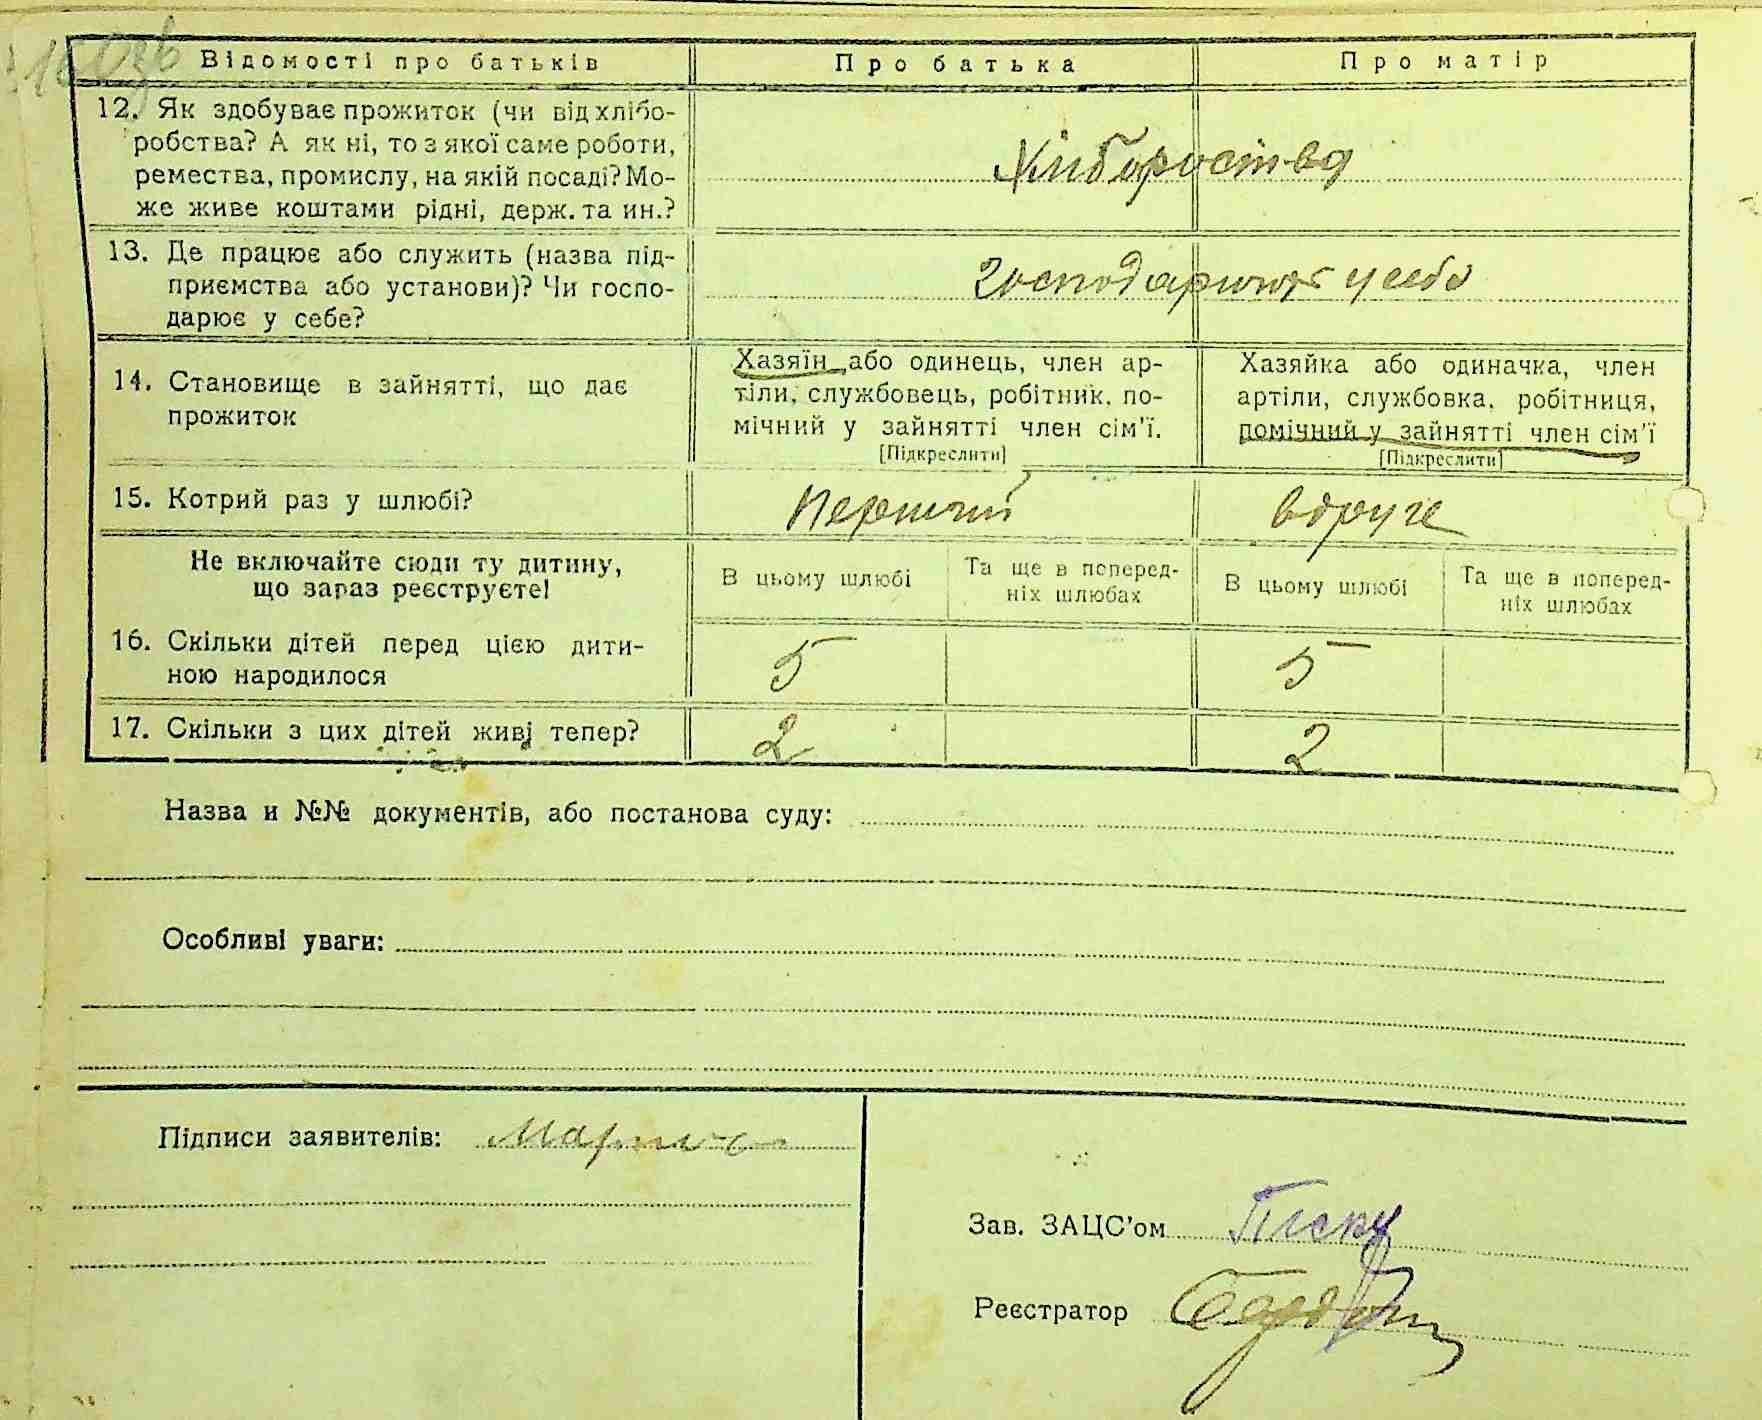 Відомості про батьків
Про батька
Про матір
12. Як здобуває прожиток (чи від хлібо-
робства? А як ні, то з якої саме роботи,
ремества, промислу, на якій посаді? Мо-
же живе коштами рідні, держ. та ин.?
Хлібороство
13. Де працює або служить (назва під-
приємства або установи)? Чи госпо-
дарює у себе?
господарюют у себе
14. Становище в зайнятті, що дає
прожиток
Хазяїн або одинець, член ар-
тіли, службовець, робітник, по-
мічний у зайнятті член сім'ї.
[Підкреслити]
Хазяйка або одиначка, член
артіли, службовка, робітниця,
помічний у зайнятті член сім'ї
[Підкреслити]
15. Котрий раз у шлюбі?
Перший
вдруге
Не включайте сюди ту дитину,
що зараз реєструєте!
В цьому шлюбі
Та ще в поперед-
ніх шлюбах
В цьому шлюбі
Та ще в поперед-
ніх шлюбах
16. Скільки дітей перед цією дити-
ною народилося
5
5
17. Скільки з цих дітей живі тепер?
2
2
Назва и №№ документів, або постанова суду:
Особливі уваги:
Підписи заявителів:
Зав. ЗАЦС'ом
Реєстратор